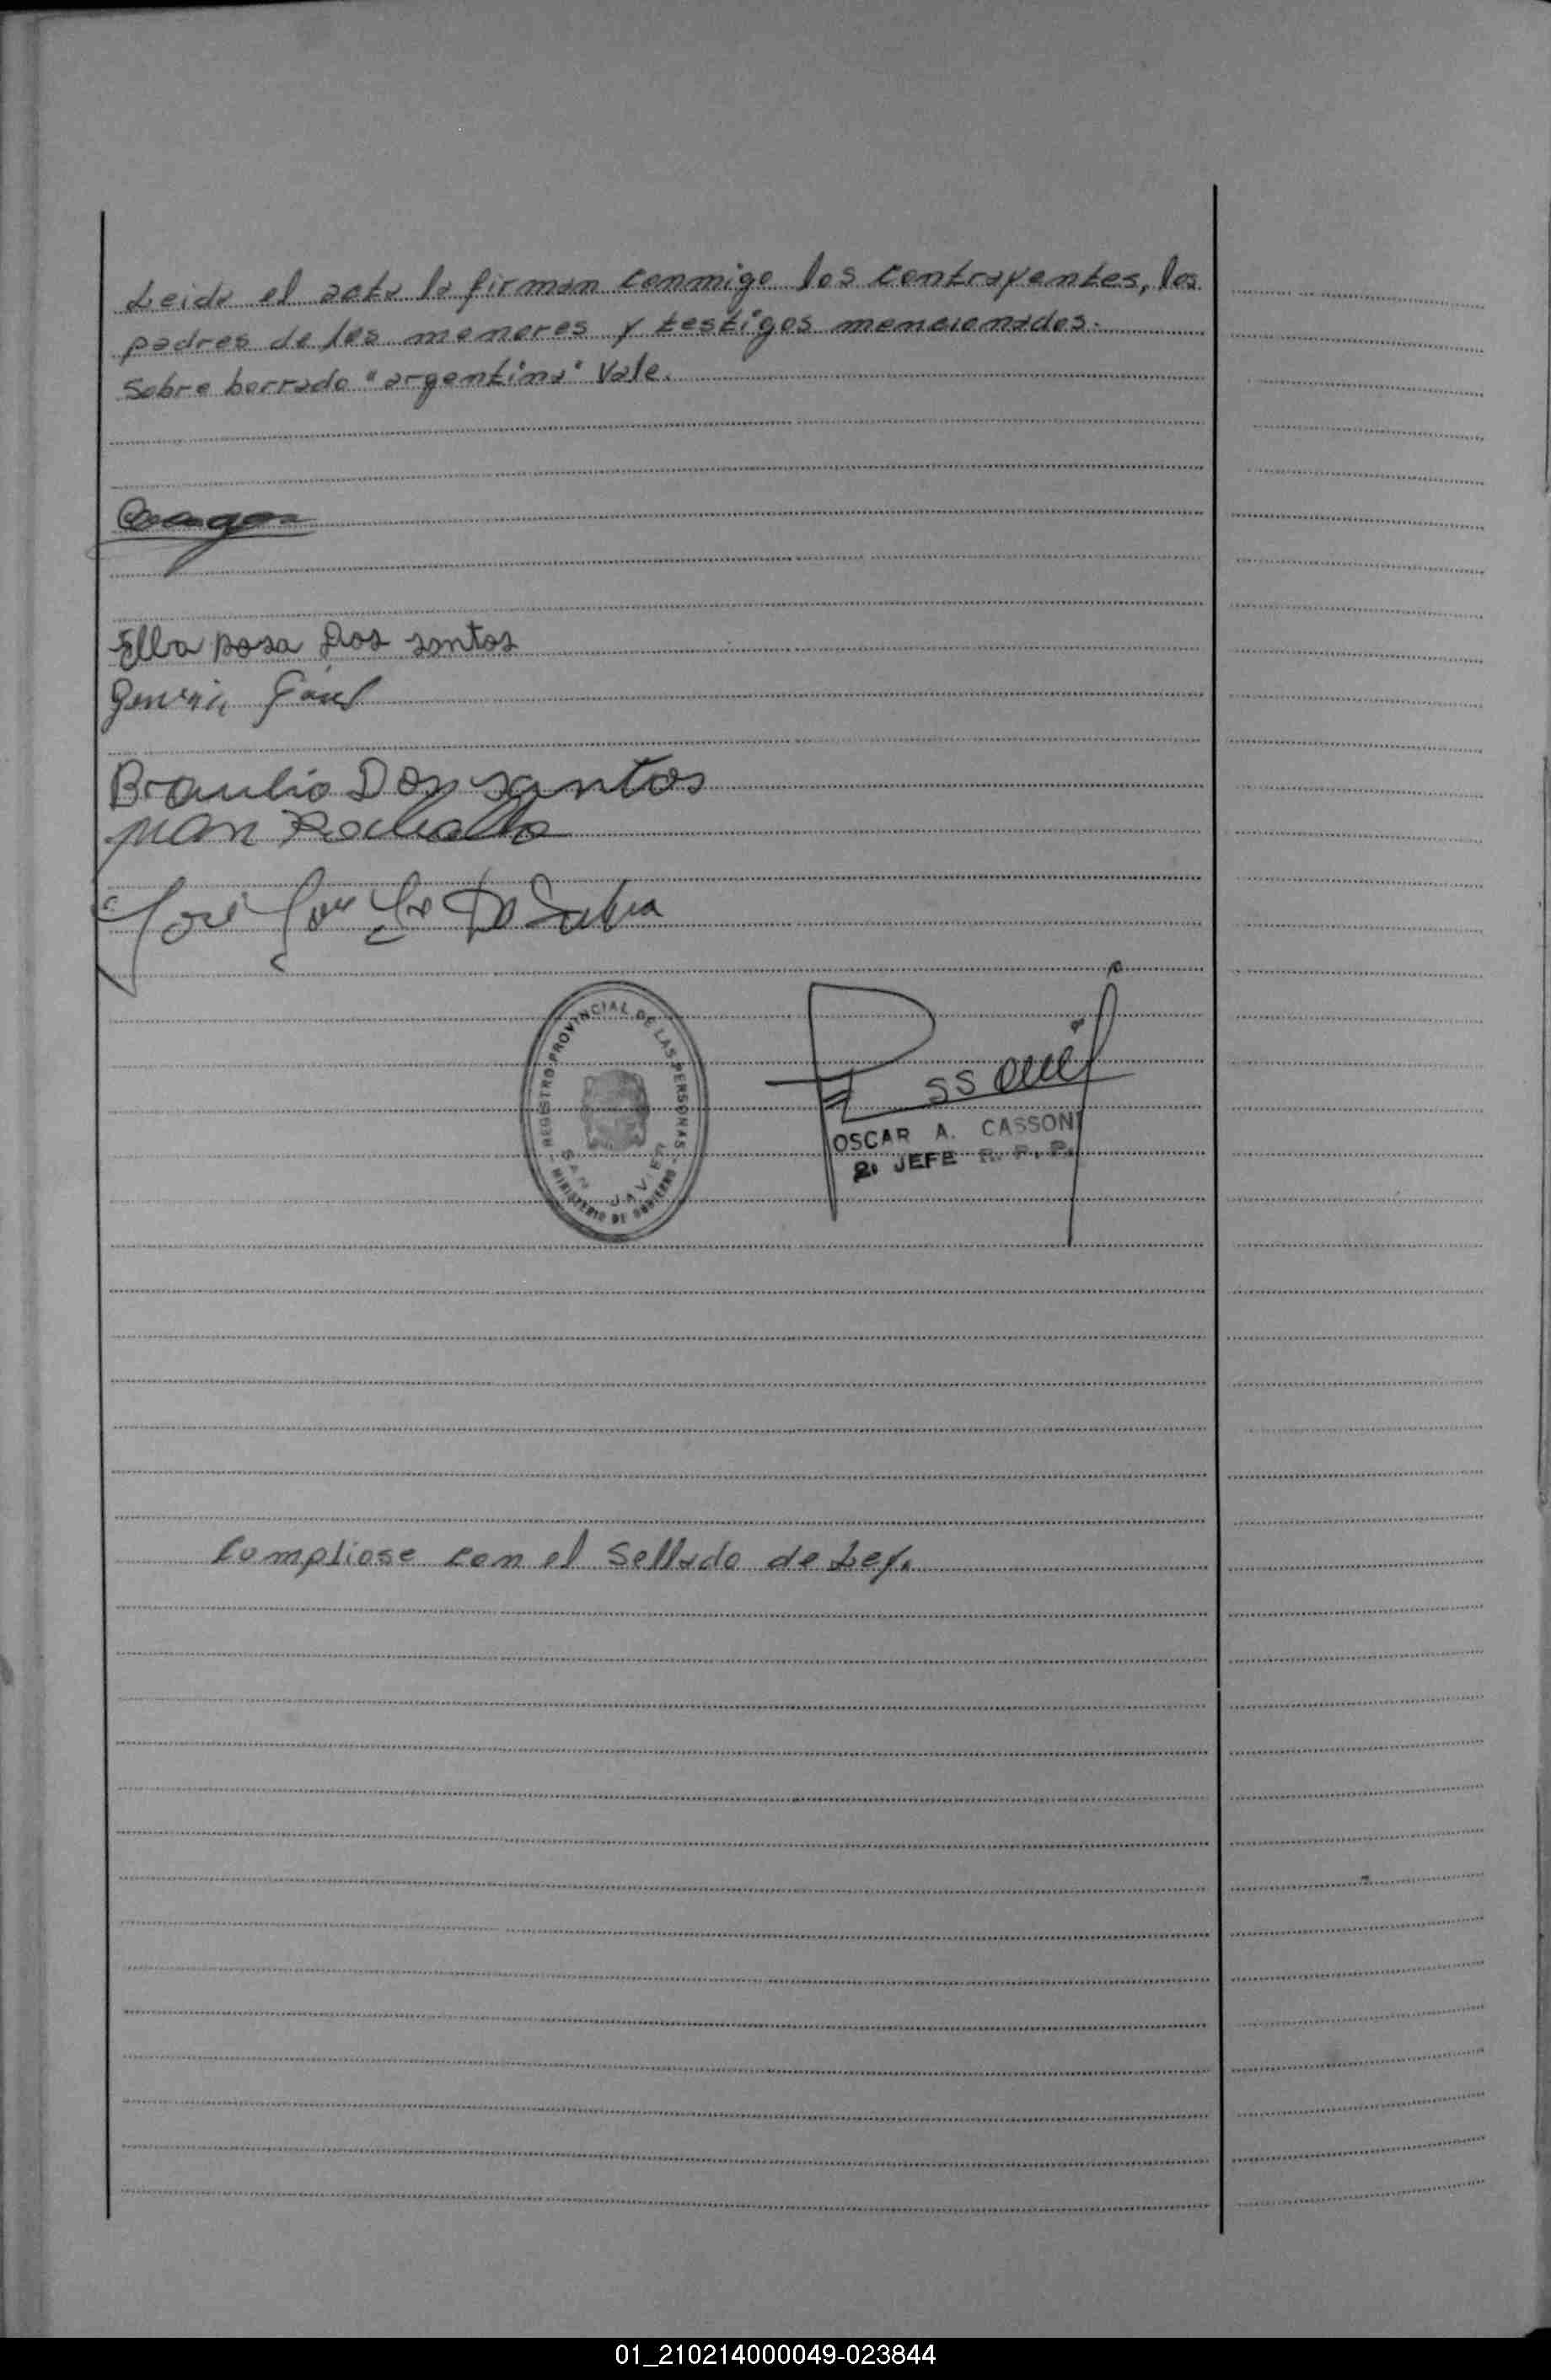 Leida el acta la firman conmigo los contrayentes, los
padres de los menores y testigos mencionados.
Sobre borrado "argentina" Vale.
Elba Rosa Dos santos
Braulio Dos santos
Juan
José Da Silva
REGISTRO PROVINCIAL DE LAS PERSONAS
SAN JAVIER
MINISTERIO DE GOBIERNO
OSCAR A. CASSONI
2. JEFE R. P. P.
Cumpliose con el Sellado de Ley.
01_210214000049-023844